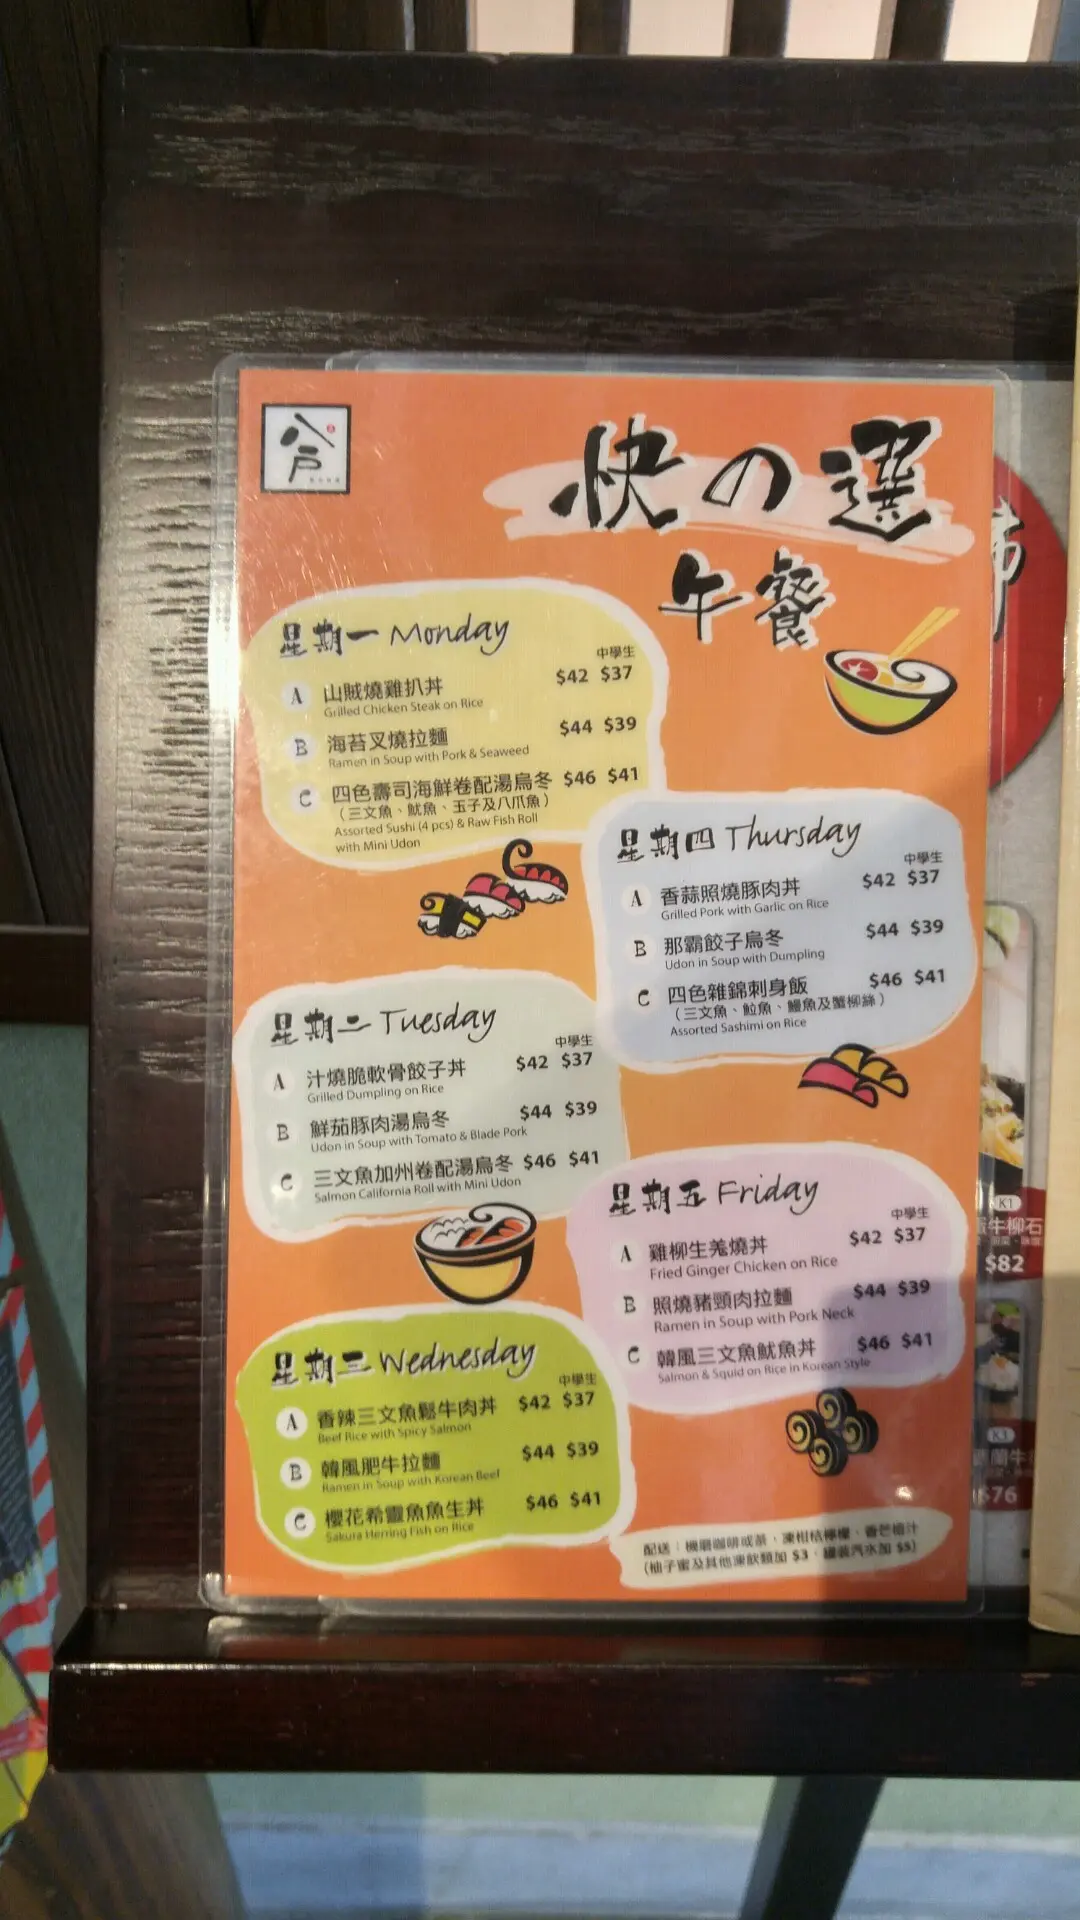 八戶
快の選
午餐
星期一 Monday
中學生
A 山賊燒雞扒丼 $42 $37
Grilled Chicken Steak on Rice
B 海苔叉燒拉麵 $44 $39
Ramen in Soup with Pork & Seaweed
C 四色壽司海鮮卷配湯烏冬 $46 $41
（三文魚、魷魚、玉子及八爪魚）
Assorted Sushi (4 pcs) & Raw Fish Roll
with Mini Udon
星期二 Tuesday
中學生
A 汁燒脆軟骨餃子丼 $42 $37
Grilled Dumpling on Rice
B 鮮茄豚肉湯烏冬 $44 $39
Udon in Soup with Tomato & Blade Pork
C 三文魚加州卷配湯烏冬 $46 $41
Salmon California Roll with Mini Udon
星期三 Wednesday
中學生
A 香辣三文魚鬆牛肉丼 $42 $37
Beef Rice with Spicy Salmon
B 韓風肥牛拉麵 $44 $39
Ramen in Soup with Korean Beef
C 櫻花希靈魚魚生丼 $46 $41
Sakura Herring Fish on Rice
星期四 Thursday
中學生
A 香蒜照燒豚肉丼 $42 $37
Grilled Pork with Garlic on Rice
B 那霸餃子烏冬 $44 $39
Udon in Soup with Dumpling
C 四色雜錦刺身飯 $46 $41
（三文魚、鯰魚、鰻魚及蟹柳絲）
Assorted Sashimi on Rice
星期五 Friday
中學生
A 雞柳生羗燒丼 $42 $37
Fried Ginger Chicken on Rice
B 照燒豬頸肉拉麵 $44 $39
Ramen in Soup with Pork Neck
C 韓風三文魚魷魚丼 $46 $41
Salmon & Squid on Rice in Korean Style
配送：機磨咖啡或茶、凍柑桔檸檬、香芒橙汁
(柚子蜜及其他凍飲類加 $3，罐裝汽水加 $5)
K1
牛柳石
$82
K3
$76